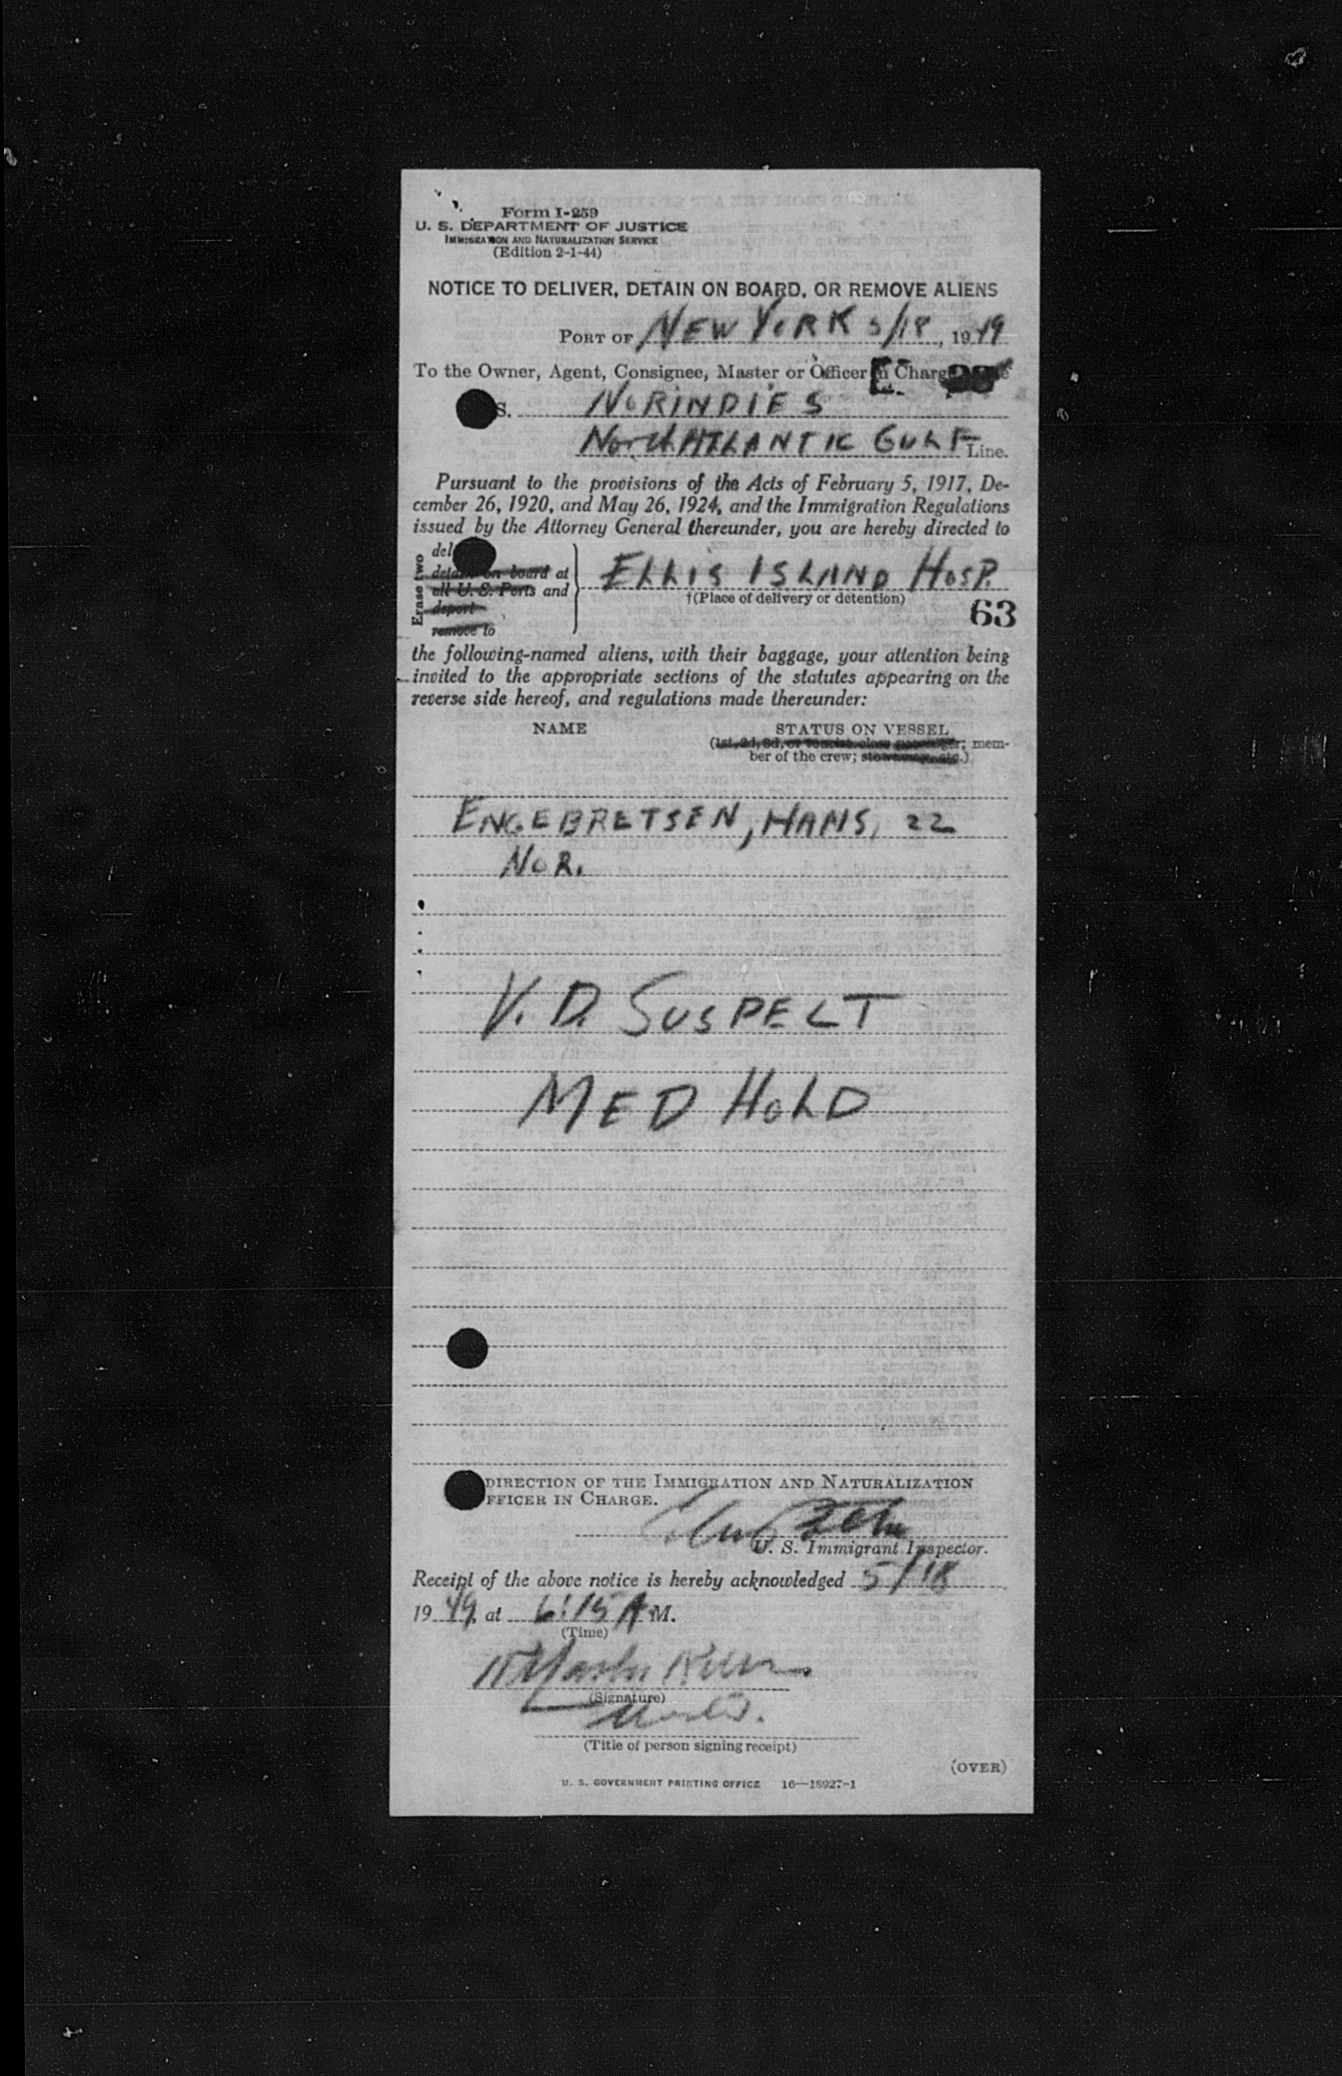 Form I-259
U. S. DEPARTMENT OF JUSTICE
IMMIGRATION AND NATURALIZATION SERVICE
(Edition 2-1-44)
NOTICE TO DELIVER, DETAIN ON BOARD, OR REMOVE ALIENS
PORT OF NEW YORK 5/18, 1949
To the Owner, Agent, Consignee, Master or Officer in Charge
S. NORINDIES
North ATLANTIC GULF Line.
Pursuant to the provisions of the Acts of February 5, 1917, De-
cember 26, 1920, and May 26, 1924, and the Immigration Regulations
issued by the Attorney General thereunder, you are hereby directed to
Erase two
del
detain on board at
all U. S. Ports and
deport
remove to
ELLIS ISLAND HOSP.
†(Place of delivery or detention)
63
the following-named aliens, with their baggage, your attention being
invited to the appropriate sections of the statutes appearing on the
reverse side hereof, and regulations made thereunder:
NAME STATUS ON VESSEL
(1st, 2d, 3d, or tourist class passenger; mem-
ber of the crew; stowaway, etc.)
ENGEBRETSEN, HANS, 22
NOR.
V.D. SUSPECT
MED HOLD
DIRECTION OF THE IMMIGRATION AND NATURALIZATION
FFICER IN CHARGE.
U. S. Immigrant Inspector.
Receipt of the above notice is hereby acknowledged 5/18
1949, at 6:15 A M.
(Time)
(Signature)
(Title of person signing receipt)
(OVER)
U. S. GOVERNMENT PRINTING OFFICE 16—18927-1